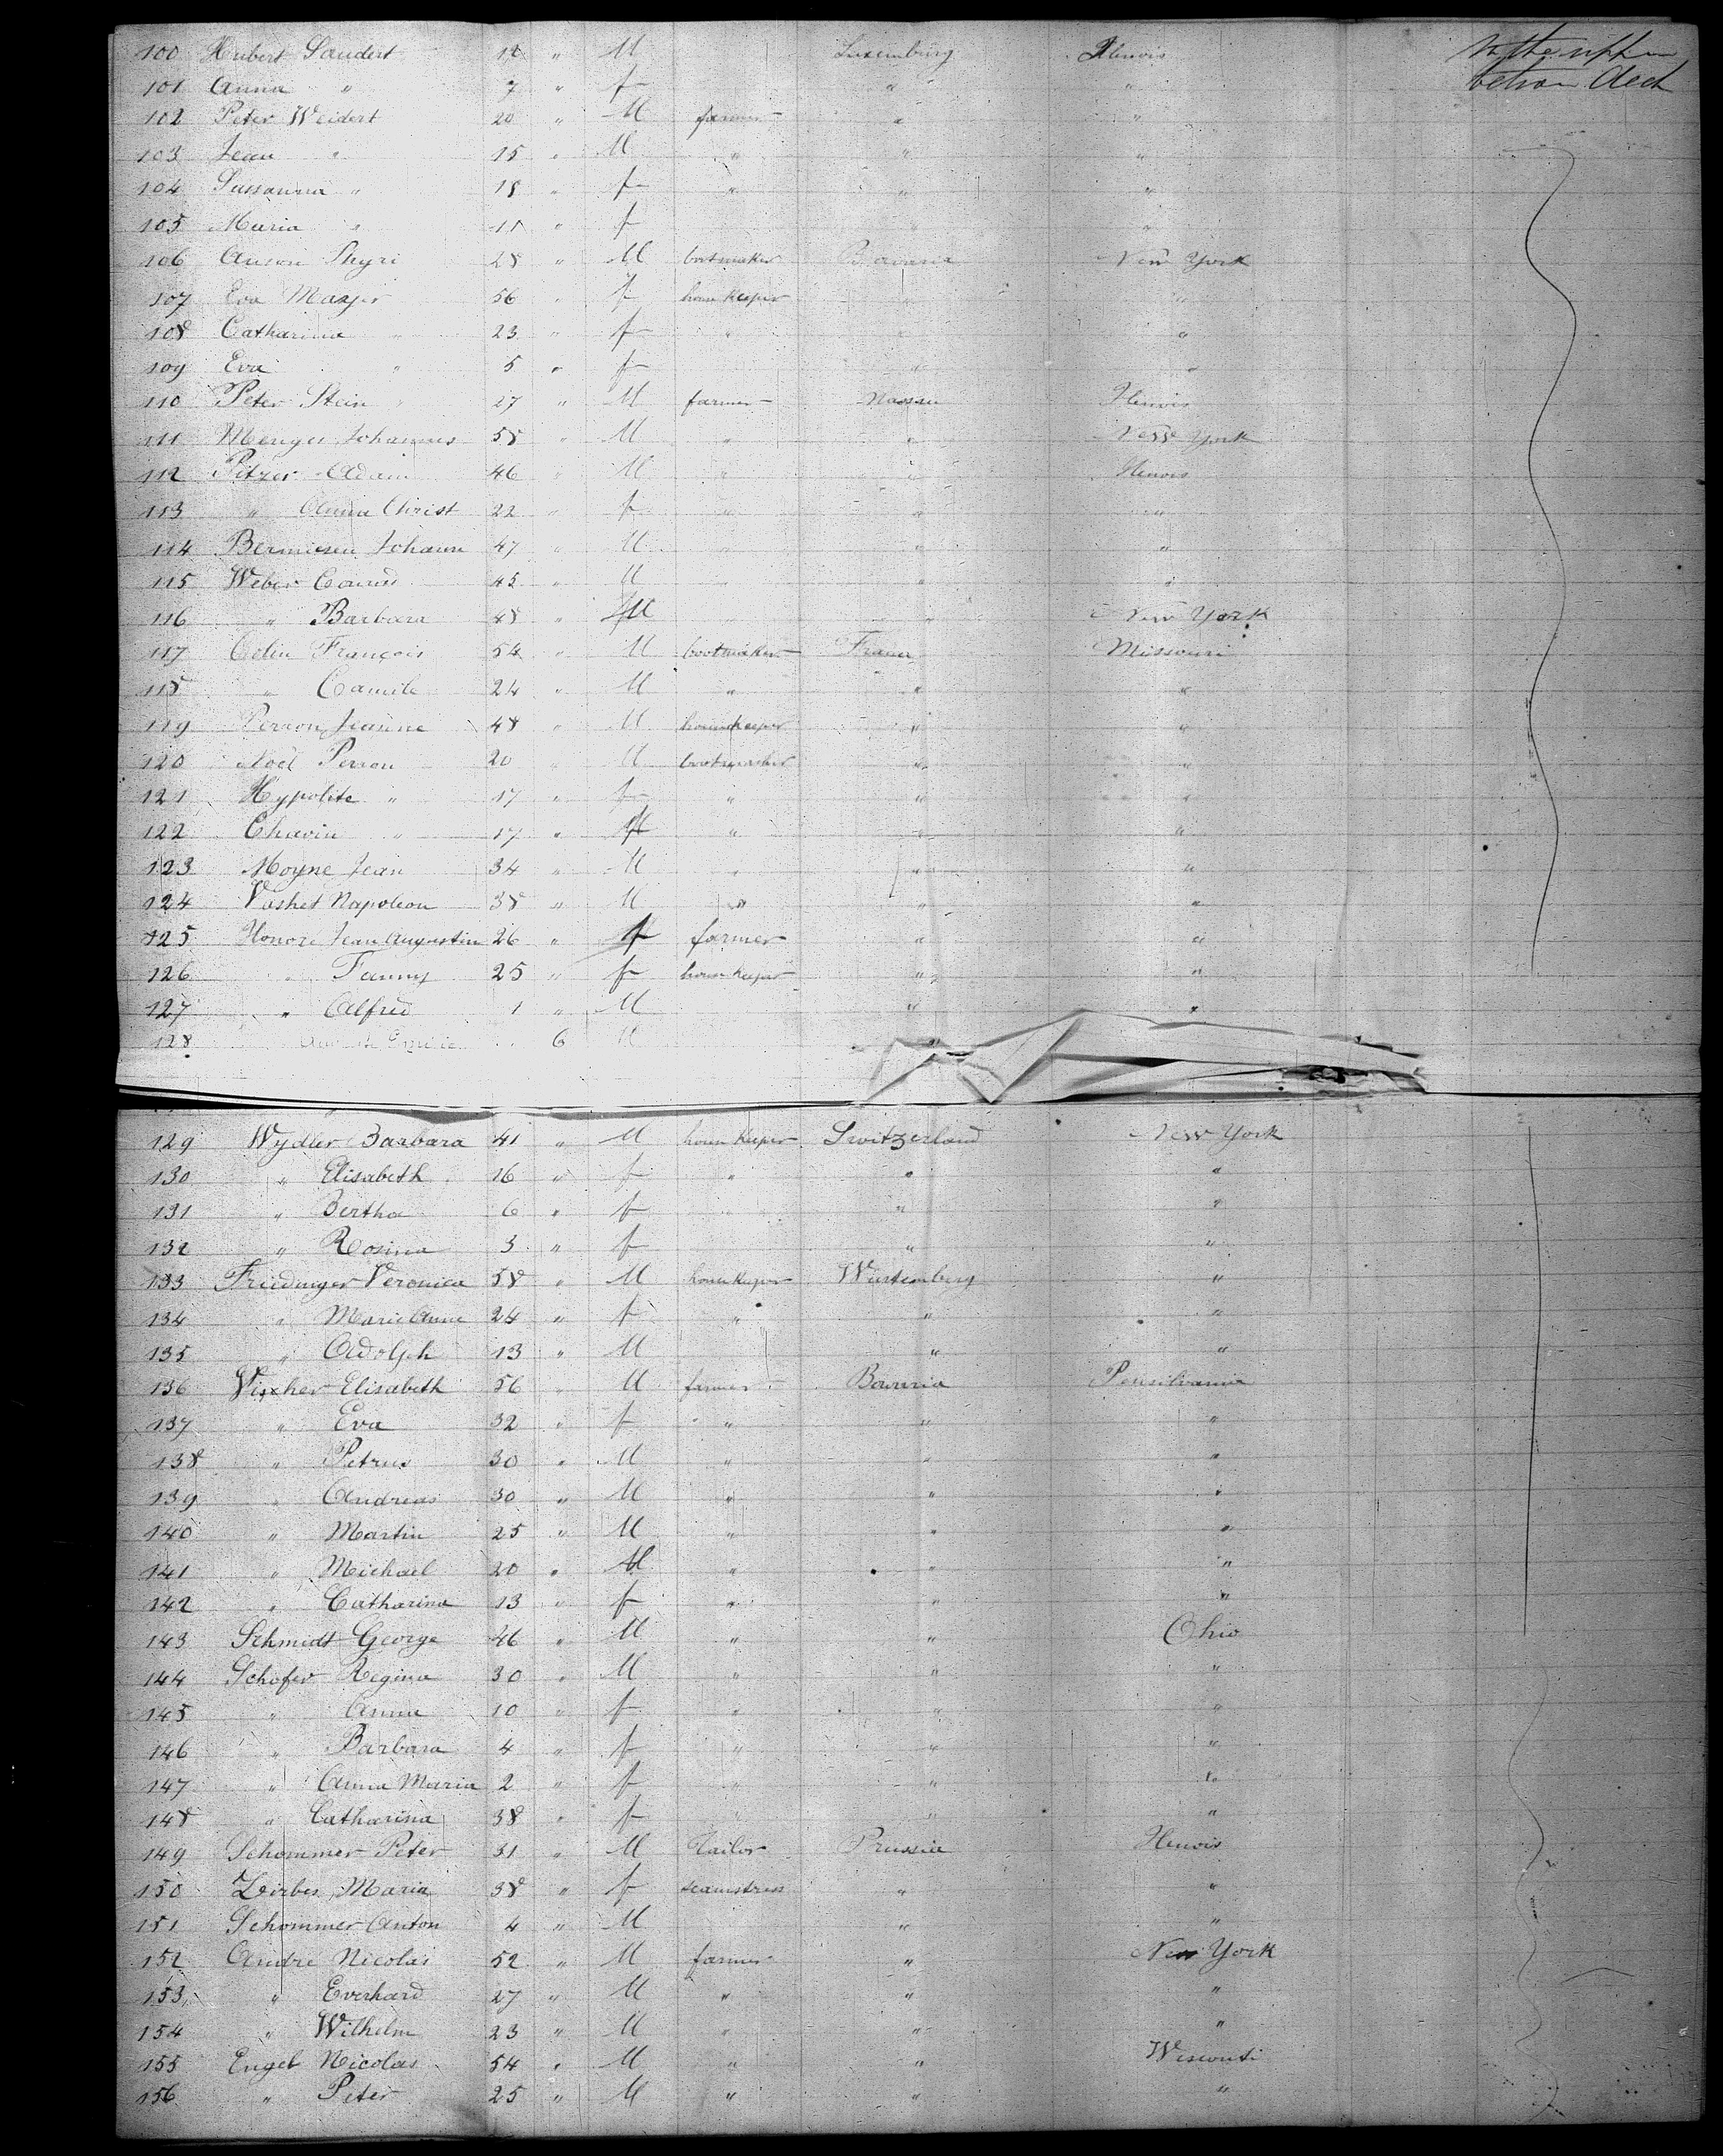 100 Hubert Saudert 12 " M Luxemburg Illenois In the upper
101 Anna " 7 " f " " between Deck
102 Peter Weidert 20 " M farmer " "
103 Jean " 15 " M " " "
104 Sussanna " 18 " f " " "
105 Maria " 11 " f " "
106 28 " M bootmaker Bavaria New York
107 Eva Mayer 56 " f house keeper " "
108 Catharina " 23 " f " " "
109 Eva " 5 " f " "
110 Peter Stein 27 " M farmer Nassau Illenois
111 Menges Johannes 58 " M " " New York
112 Pitzer Adam 46 " M " " Illenois
113 " Anna Christ 22 " f " " "
114 Johann 47 " M " " "
115 Weber Conrad 45 " M " " "
116 " Barbara 48 " M " " New York
117 Colin François 54 " M bootmaker France Missouri
118 " Camile 24 " M " " "
119 Perron Jeanne 48 " M housekeeper " "
120 Noël Perron 20 " M bootmaker " "
121 Hypolite " 17 " f " " "
122 Chavin " 17 " f " " "
123 Moyne Jean 34 " M " " "
124 Vashet Napoleon 38 " M " " "
125 Honoré Jean Augustin 26 " f farmer " "
126 " Fanny 25 " f house keeper " "
127 " Alfred 1 " M " "
128 6 M
129 Wydler Barbara 41 " M house keeper Switzerland New York
130 " Elisabeth 16 " f " " "
131 " Bertha 6 " f " " "
132 " Rosina 3 " f " "
133 Friedinger Veronica 58 " M house keeper Würtemberg "
134 " Marie Anne 24 " f " " "
135 " Adolph 13 " M " "
136 Vischer Elisabeth 56 " M farmer Bavaria Pensilvania
137 " Eva 32 " f " " "
138 " Petrus 30 " M " " "
139 " Andreas 30 " M " " "
140 " Martin 25 " M " " "
141 " Michael 20 " M " " "
142 " Catharina 13 " f " " "
143 Schmidt George 46 " M " " Ohio
144 Schofer Regina 30 " M " " "
145 " Anna 10 " f " " "
146 " Barbara 4 " f " " "
147 " Anna Maria 2 " f " " "
148 " Catharina 38 " f " " "
149 Schommer Peter 31 " M Tailor Prussia Illenois
150 Zirbes Maria 38 " f seamstress " "
151 Schommer Anton 4 " M " "
152 Andre Nicolas 52 " M farmer " New York
153 " Everhard 27 " M " " "
154 " Wilhelm 23 " M " " "
155 Engel Nicolas 54 " M " " Wisconti
156 " Peter 25 " M " " "